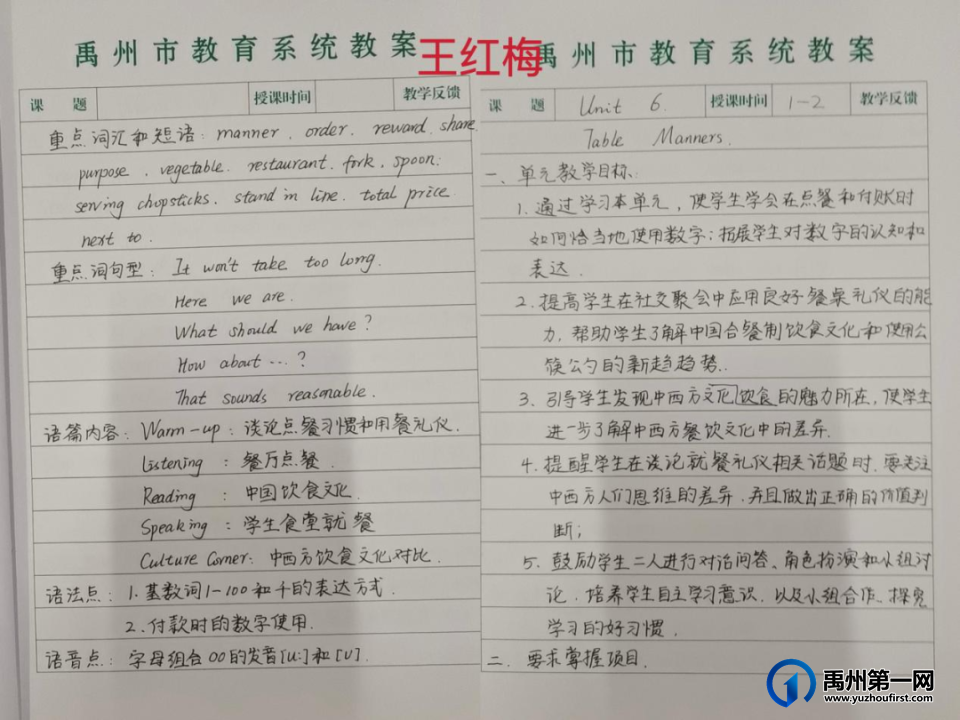 禹州市教育系统教案
王红梅
课 题 授课时间 教学反馈
重点词汇和短语: manner. order. reward. share
purpose. vegetable. restaurant. fork. spoon.
serving chopsticks. stand in line. total price
next to.
重点词句型: It won't take too long.
Here we are.
What should we have?
How about …?
That sounds reasonable.
语篇内容: Warm-up: 谈论点餐习惯和用餐礼仪.
Listening : 餐厅点餐.
Reading : 中国饮食文化.
Speaking : 学生食堂就餐
Culture Corner: 中西方饮食文化对比.
语法点: 1.基数词1-100和千的表达方式.
2.付款时的数字使用.
语音点: 字母组合OO的发音[u:]和[U].
禹州市教育系统教案
课 题 Unit 6. 授课时间 1-2 教学反馈
Table Manners.
一、单元教学目标.
1.通过学习本单元,使学生学会在点餐和付账时
如何恰当地使用数字;拓展学生对数字的认知和
表达.
2.提高学生在社交聚会中应用良好餐桌礼仪的能
力,帮助学生了解中国合餐制饮食文化和使用公
筷公勺的新趋趋势.
3.引导学生发现中西方文化饮食的魅力所在,使学生
进一步了解中西方餐饮文化中的差异.
4.提醒学生在谈论就餐礼仪相关话题时.要关注
中西方人们思维的差异.并且做出正确的价值判
断;
5.鼓励学生二人进行对话问答、角色扮演和小组讨
论.培养学生自主学习意识.以及小组合作、探究
学习的好习惯.
二.要求掌握项目.
禹州第一网
www.yuzhoufirst.com